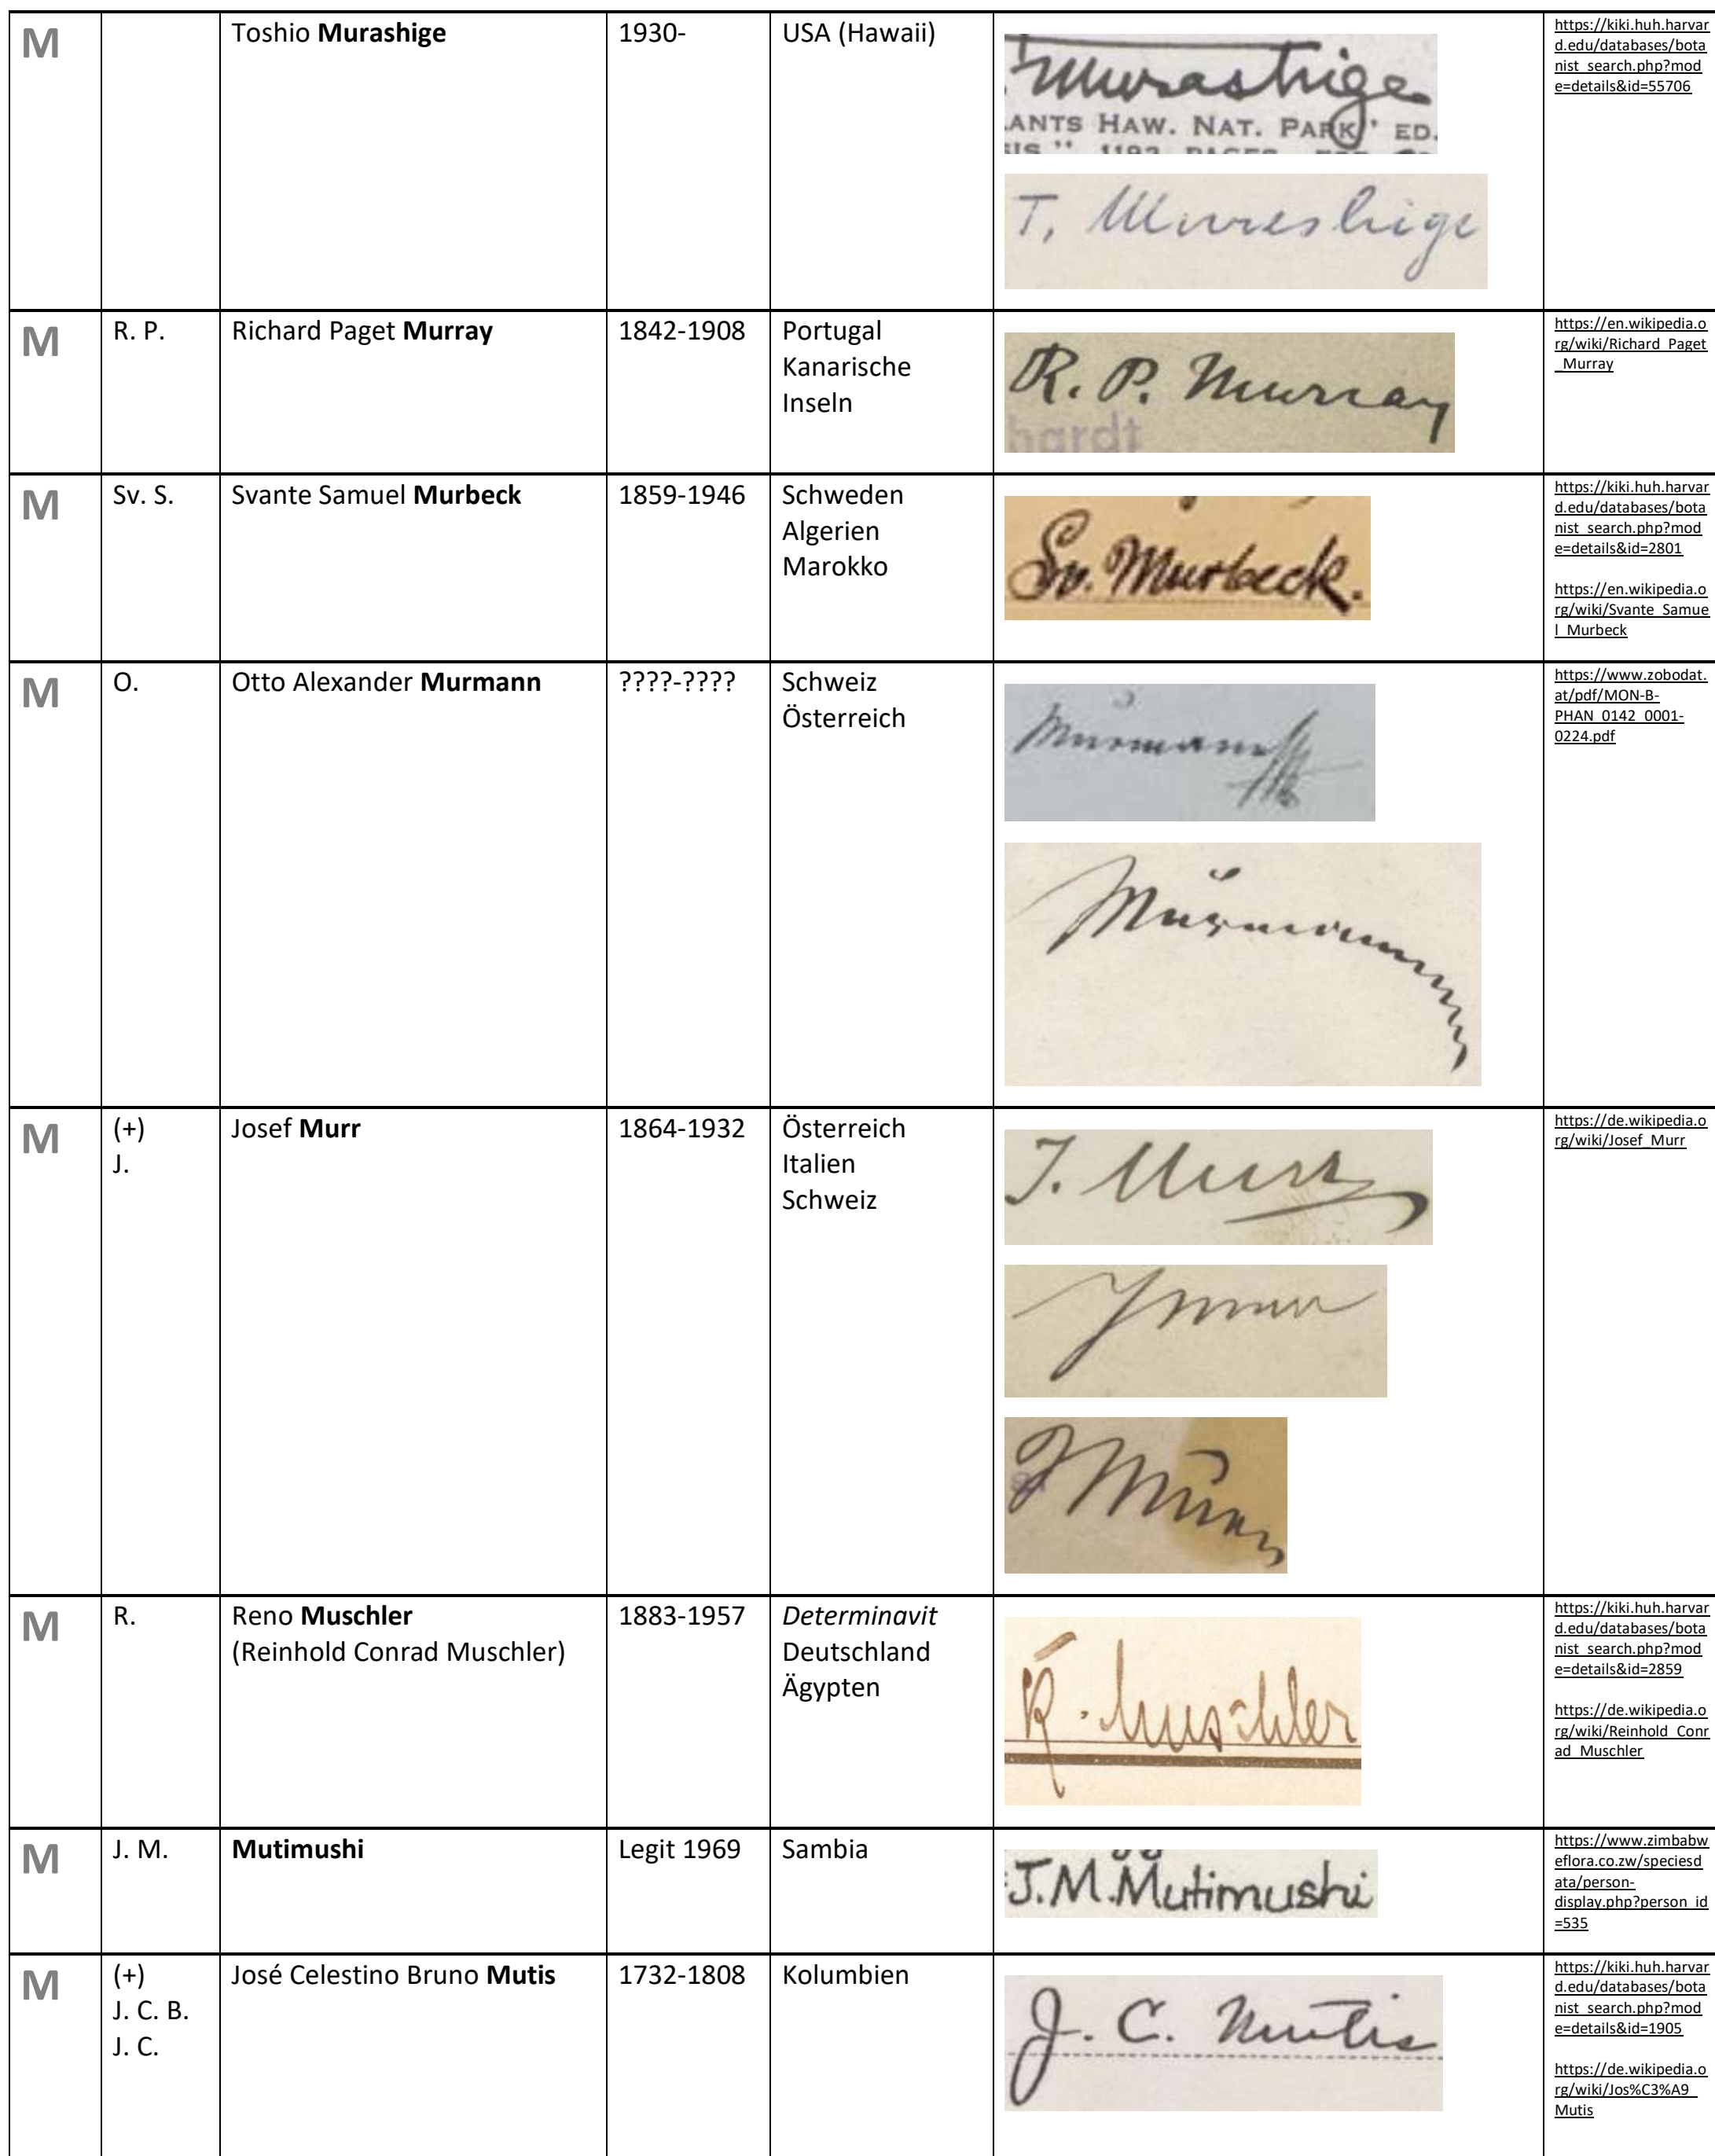 M
Toshio Murashige
1930-
USA (Hawaii)
Murashige
LANTS HAW. NAT. PARK" ED.
SIS," 1192 PAGES,
T. Murashige
https://kiki.huh.harvar
d.edu/databases/bota
nist_search.php?mod
e=details&id=55706
M
R. P.
Richard Paget Murray
1842-1908
Portugal
Kanarische
Inseln
R. P. Murray
hardt
https://en.wikipedia.o
rg/wiki/Richard_Paget
_Murray
M
Sv. S.
Svante Samuel Murbeck
1859-1946
Schweden
Algerien
Marokko
Sv. Murbeck.
https://kiki.huh.harvar
d.edu/databases/bota
nist_search.php?mod
e=details&id=2801
https://en.wikipedia.o
rg/wiki/Svante_Samue
l_Murbeck
M
O.
Otto Alexander Murmann
????-????
Schweiz
Österreich
Murmann
Murmann
https://www.zobodat.
at/pdf/MON-B-
PHAN_0142_0001-
0224.pdf
M
(+)
J.
Josef Murr
1864-1932
Österreich
Italien
Schweiz
J. Murr
J Murr
J Murr
https://de.wikipedia.o
rg/wiki/Josef_Murr
M
R.
Reno Muschler
(Reinhold Conrad Muschler)
1883-1957
Determinavit
Deutschland
Ägypten
R. Muschler
https://kiki.huh.harvar
d.edu/databases/bota
nist_search.php?mod
e=details&id=2859
https://de.wikipedia.o
rg/wiki/Reinhold_Conr
ad_Muschler
M
J. M.
Mutimushi
Legit 1969
Sambia
J.M.Mutimushi
https://www.zimbabw
eflora.co.zw/speciesd
ata/person-
display.php?person_id
=535
M
(+)
J. C. B.
J. C.
José Celestino Bruno Mutis
1732-1808
Kolumbien
J. C. Mutis
https://kiki.huh.harvar
d.edu/databases/bota
nist_search.php?mod
e=details&id=1905
https://de.wikipedia.o
rg/wiki/Jos%C3%A9_
Mutis